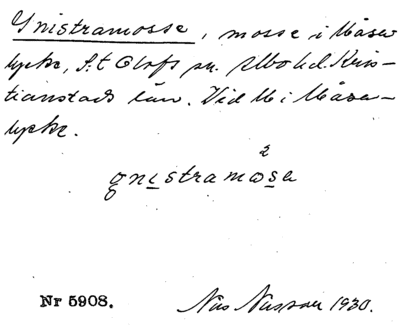 Gnistramosse, mosse i Måsa
lycke, S:t Olofs sn. Albo hd. Kris-
tianstads län. Vid M i Måsa-
lycke.
2
gnistramosa
Nr 5908.
Nils Nilsson 1930.